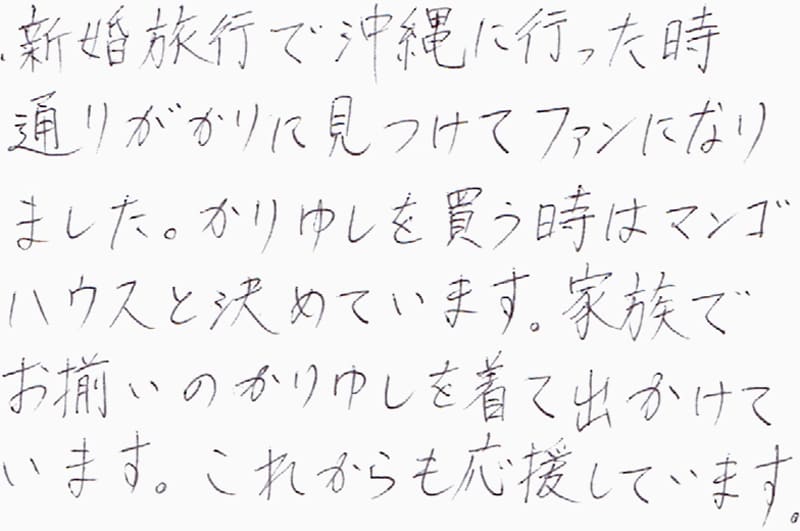 新婚旅行で沖縄に行った時
通りがかりに見つけてファンになり
ました。かりゆしを買う時はマンゴ
ハウスと決めています。家族で
お揃いのかりゆしを着て出かけて
います。これからも応援しています。